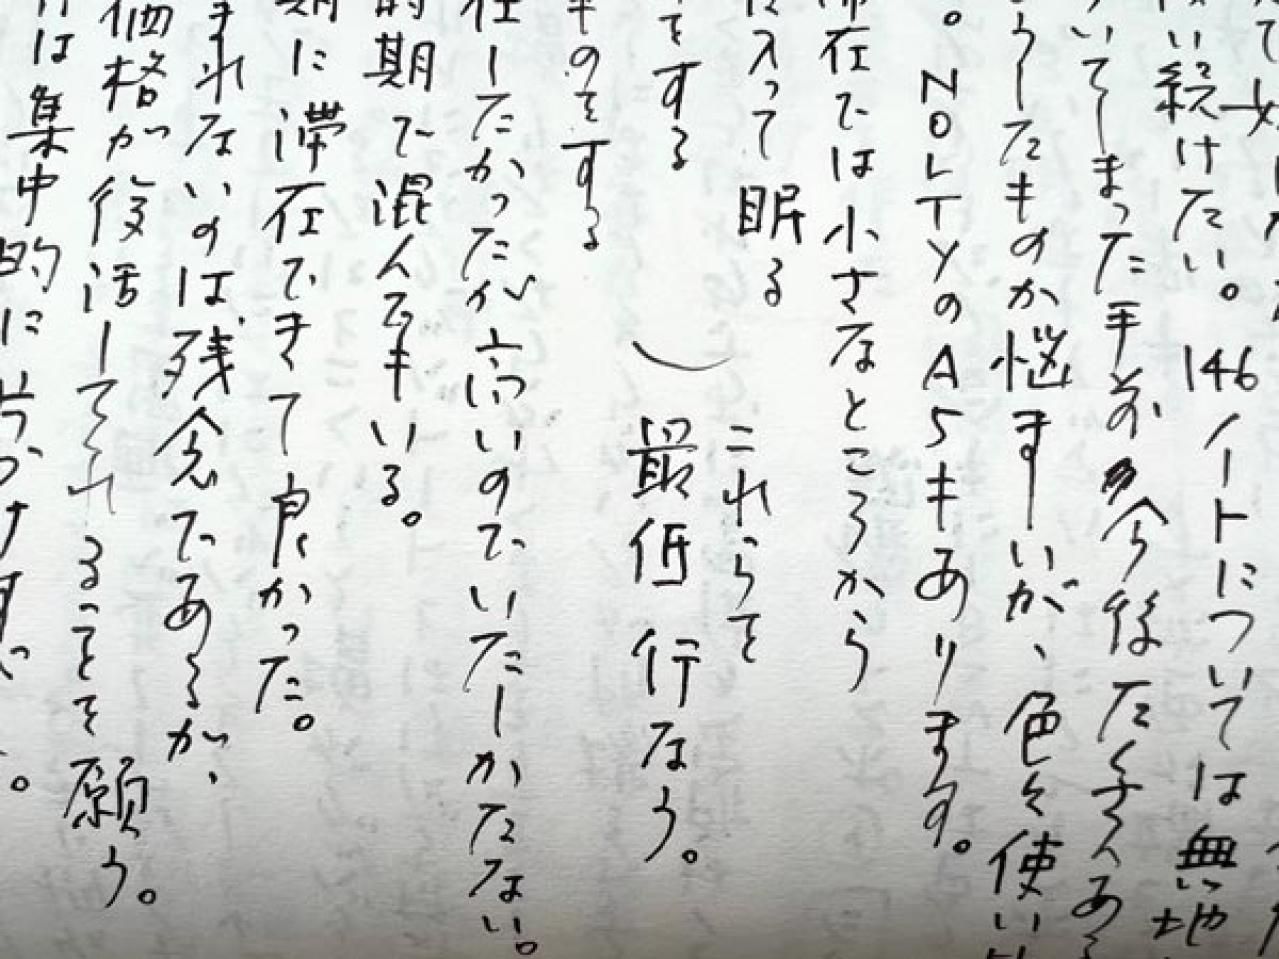 い続けたい。146ノートについては無地
いてしまった手前今後たくさんある
うしたものか悩ましいが、色々使い
。NOLTYのA5もあります。
滞在では小さなところから
入って眠る
これらを
をする
最低行なう。
ものをする
在したかったが高いのでいたしかたない。
時期で混んでもいる。
期に滞在できて良かった。
まれないのは残念であるが、
価格が復活してくれることを願う。
は集中的に片づけ